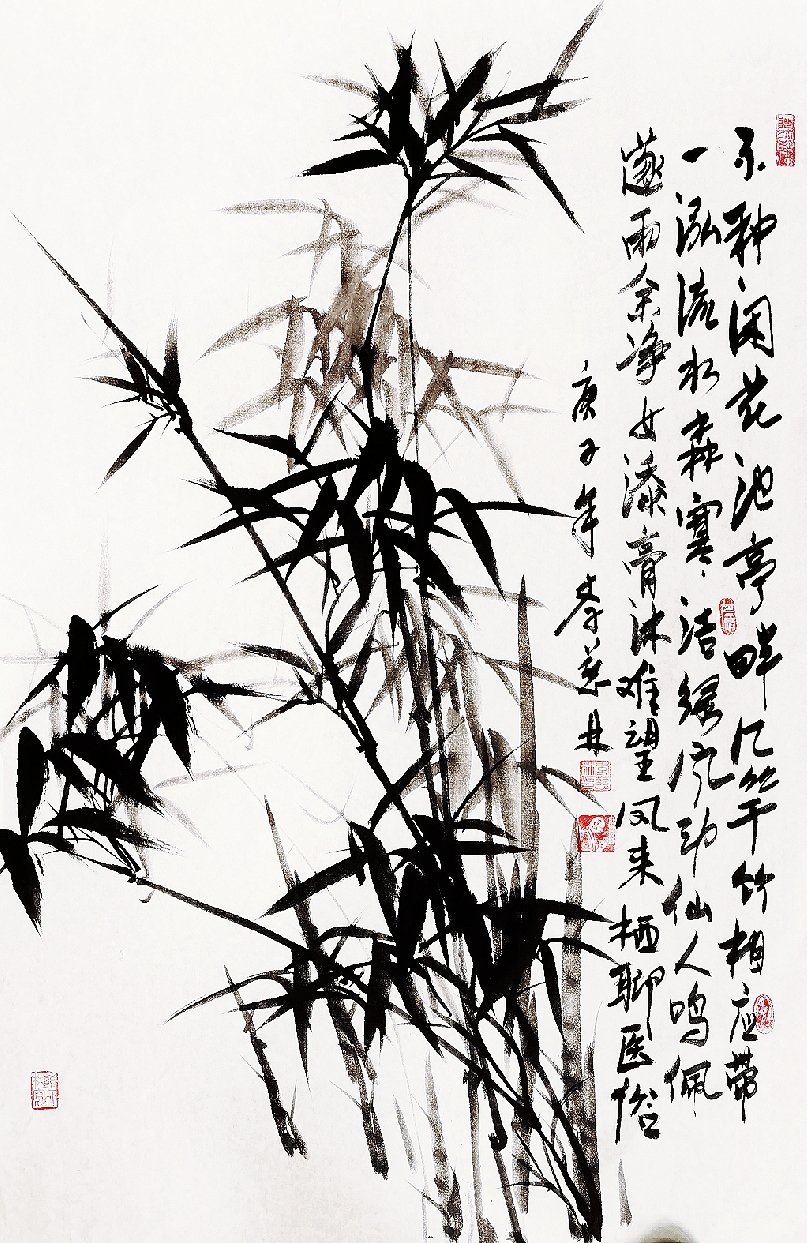 不种闲花池亭畔几竿竹相应带
一泓流水森寒洁绿风动仙人鸣佩
遂雨余净女添膏沐难望凤来栖聊医俗
庚子年李慈林